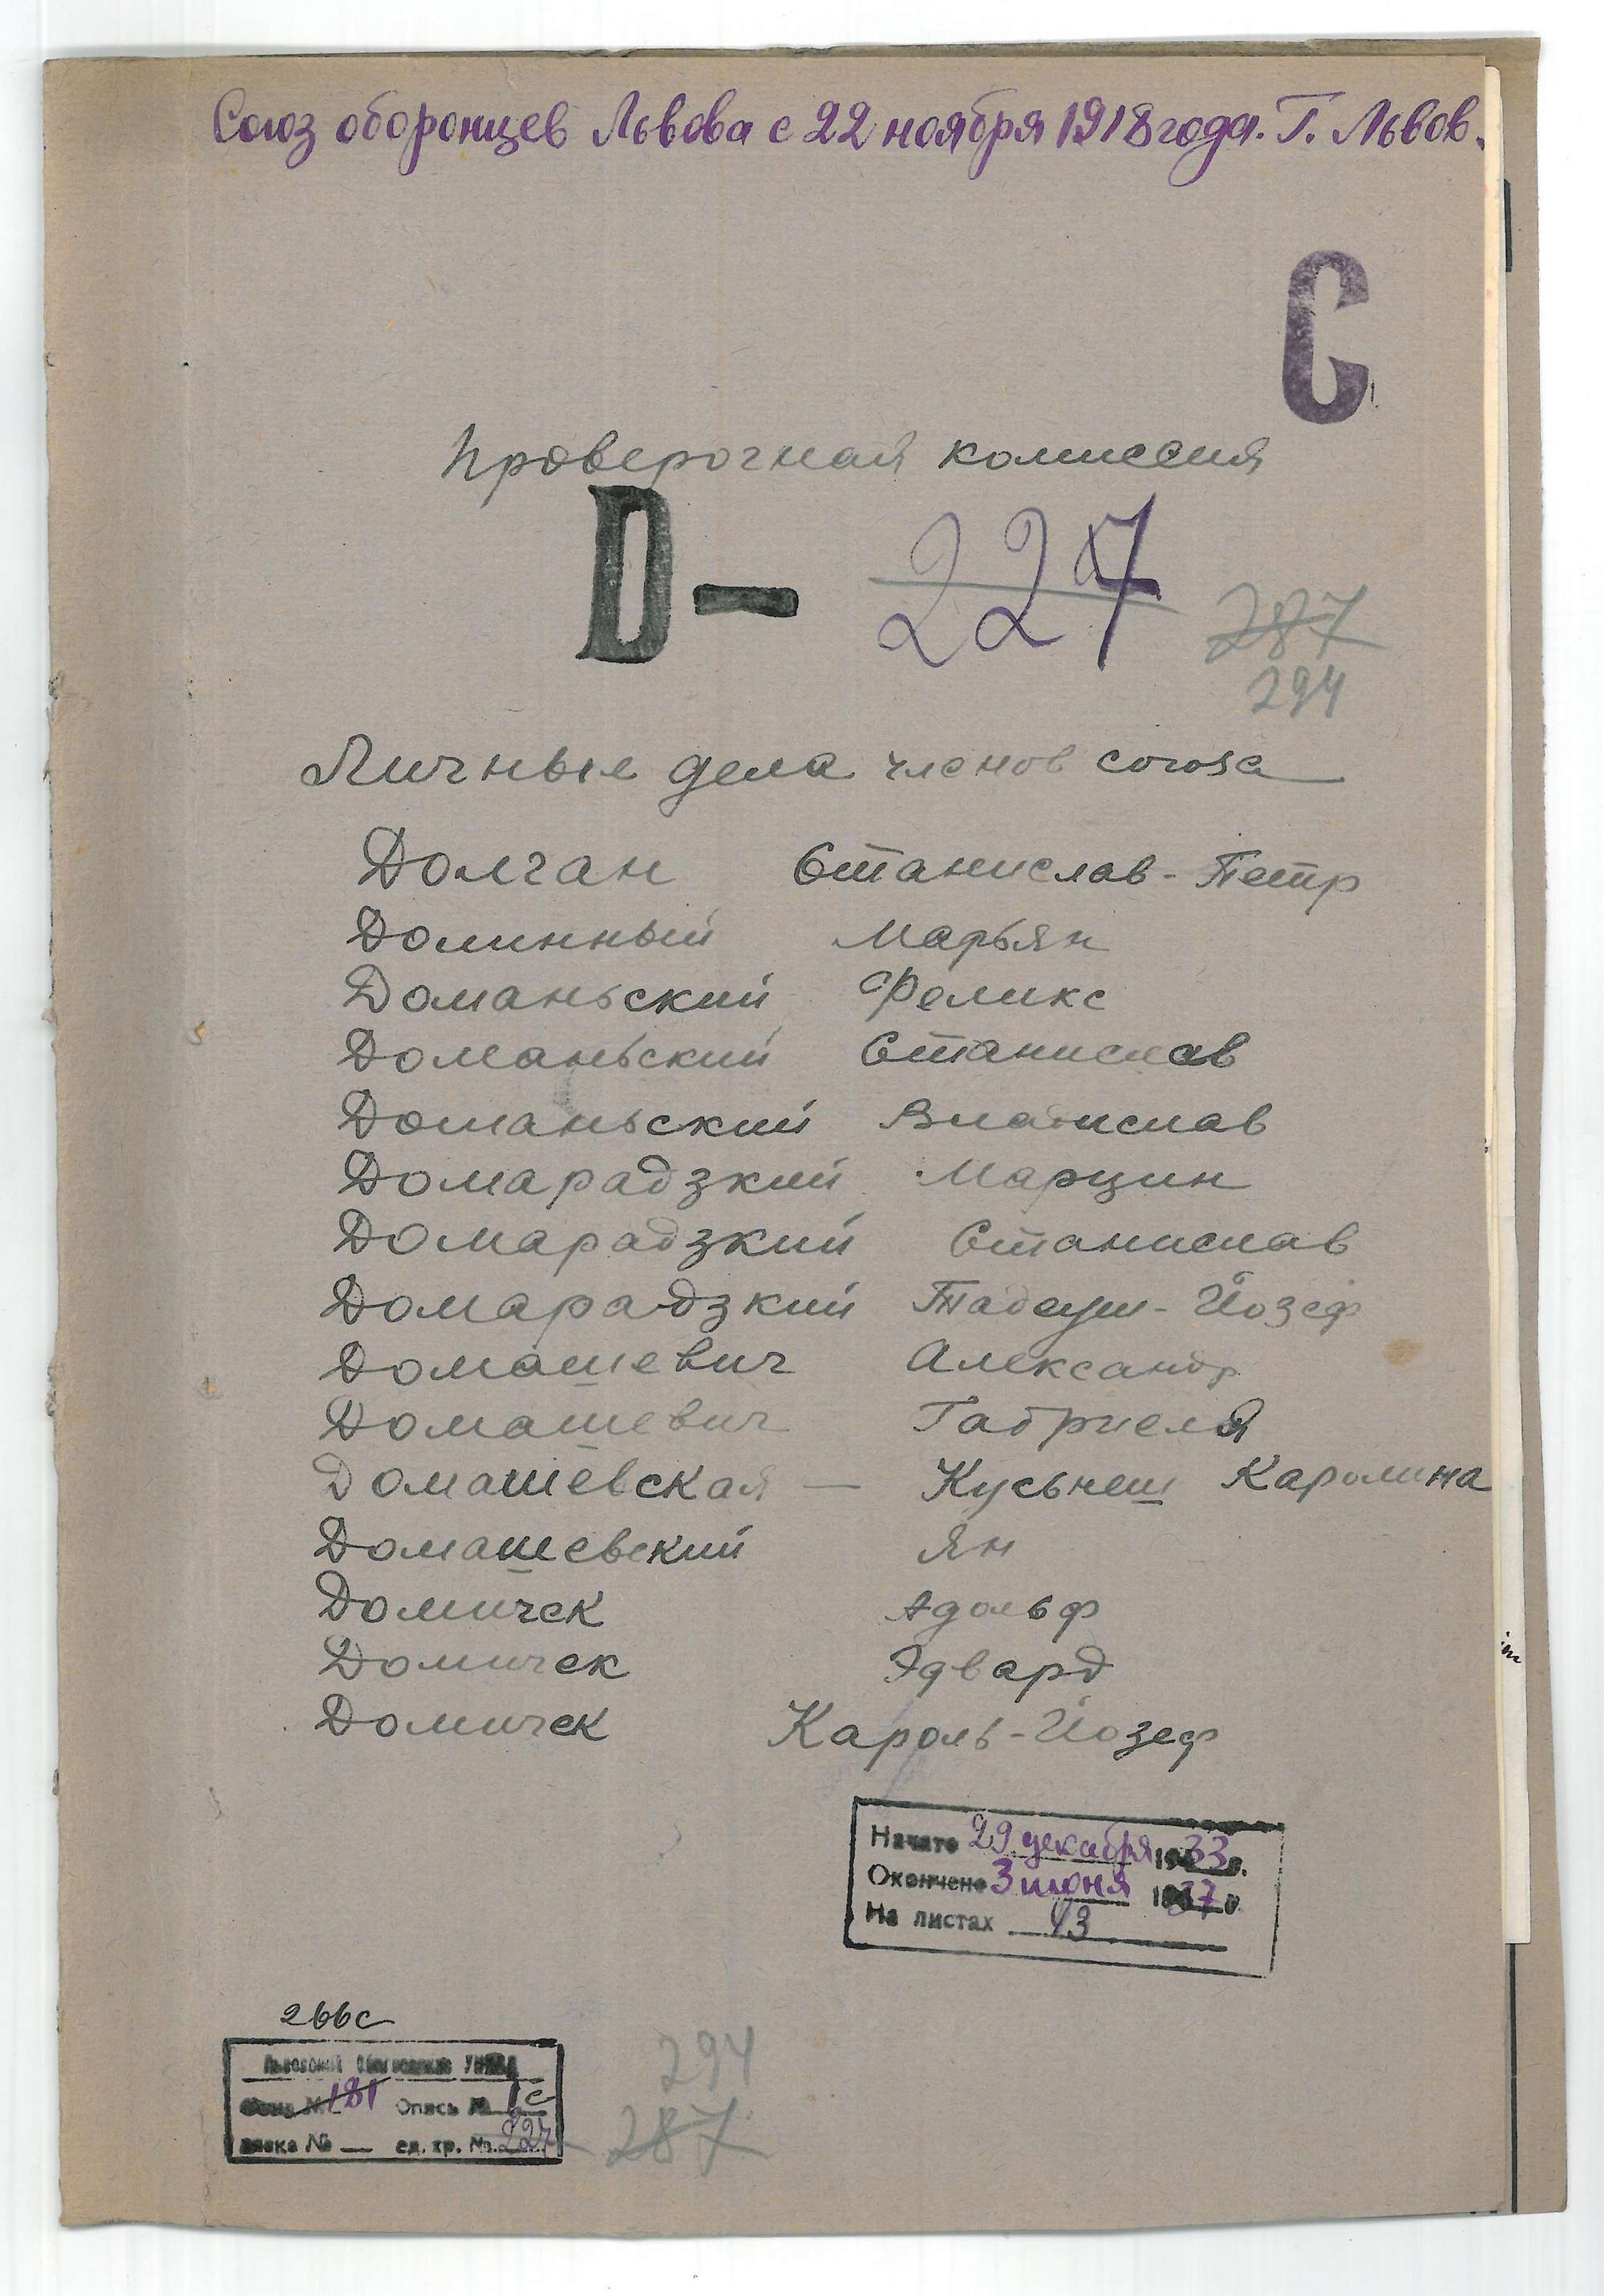 Союз оборонцев Львова с 22 ноября 1918 года. Г. Львов.
С
Проверочная комиссия
D — 227
287
294
Личные дела членов союза
Долган Станислав-Петр
Долинный Марьян
Доманьский Феликс
Доманьский Станислав
Доманьский Владислав
Домарадзкий Марцин
Домарадзкий Станислав
Домарадзкий Тадеуш-Йозеф
Домашевич Александр
Домашевич Габриеля
Домашевская — Кусьнеш Каролина
Домашевский Ян
Домичек Адольф
Домичек Эдвард
Домичек Кароль-Йозеф
Начато 29 декабря 1933 г.
Окончено 3 июня 1937 г.
На листах 43
266с
294
Фонд № 181 Опись № 1с
№ — ед. хр. № 227
287